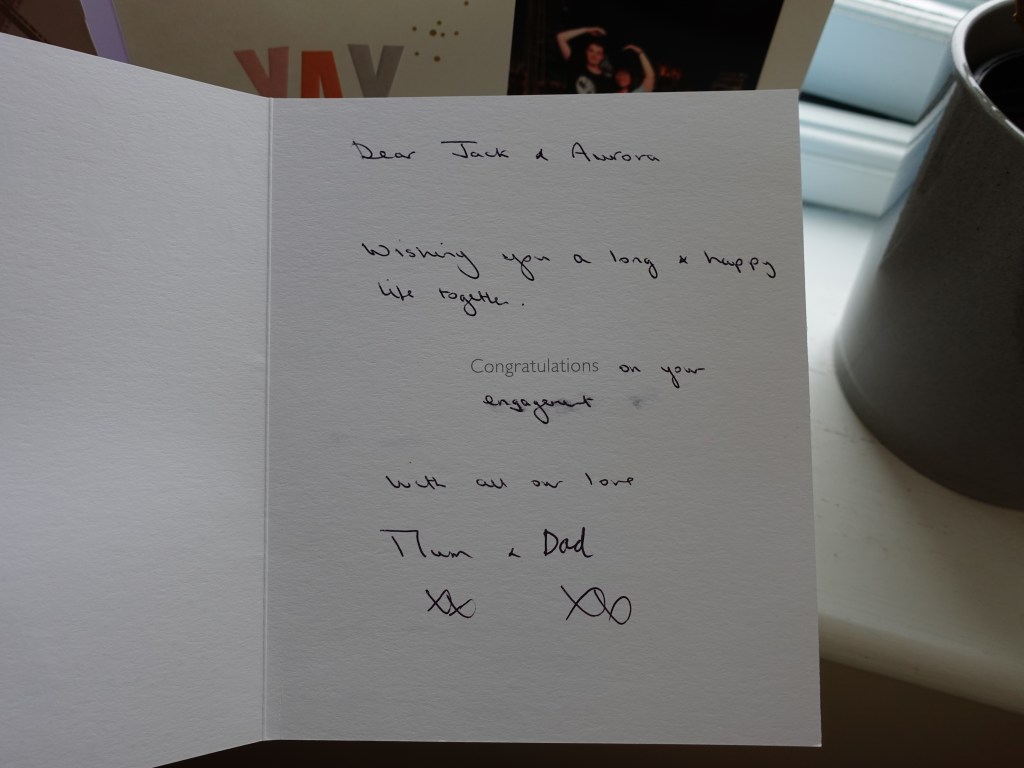 YAY
Dear Jack & Aurora
Wishing you a long & happy
life together.
Congratulations on your
engagement
With all our love
Mum & Dad
xx xxo